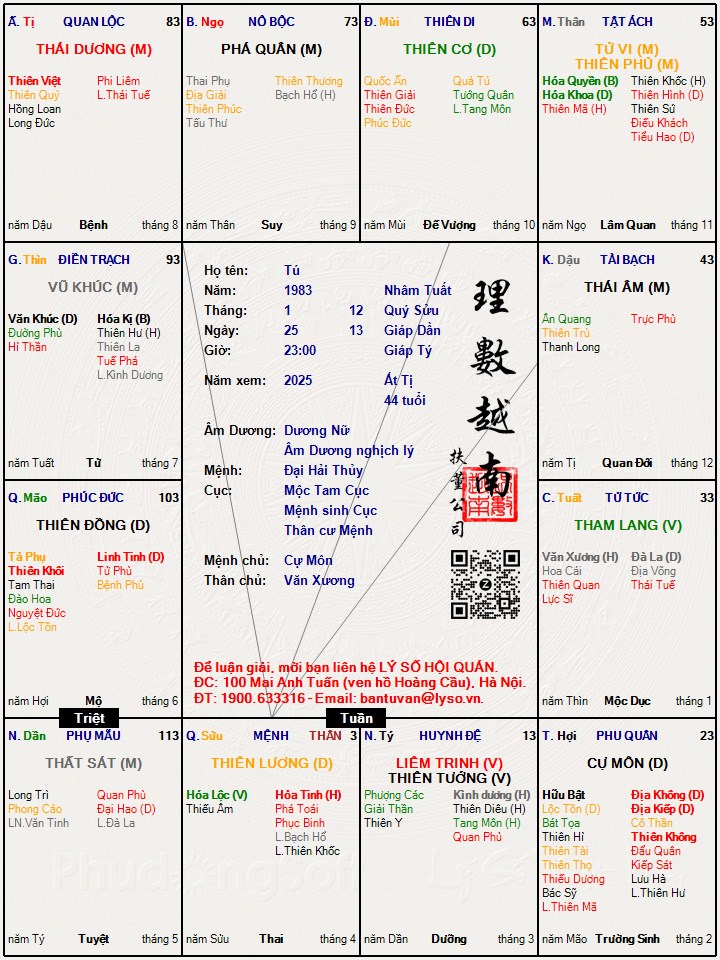 Ấ. Tị QUAN LỘC 83
THÁI DƯƠNG (M)
Thiên Việt Phi Liêm
Thiên Quý L.Thái Tuế
Hồng Loan
Long Đức
năm Dậu Bệnh tháng 8
B. Ngọ NÔ BỘC 73
PHÁ QUÂN (M)
Thai Phụ Thiên Thương
Địa Giải Bạch Hổ (H)
Thiên Phúc
Tấu Thư
năm Thân Suy tháng 9
Đ. Mùi THIÊN DI 63
THIÊN CƠ (D)
Quốc Ấn Quả Tú
Thiên Giải Tướng Quân
Thiên Đức L.Tang Môn
Phúc Đức
năm Mùi Đế Vượng tháng 10
M. Thân TẬT ÁCH 53
TỬ VI (M)
THIÊN PHỦ (M)
Hóa Quyền (B) Thiên Khốc (H)
Hóa Khoa (D) Thiên Hình (D)
Thiên Mã (H) Thiên Sứ
Điếu Khách
Tiểu Hao (D)
năm Ngọ Lâm Quan tháng 11
G. Thìn ĐIỀN TRẠCH 93
VŨ KHÚC (M)
Văn Khúc (D) Hóa Kị (B)
Đường Phù Thiên Hư (H)
Hỉ Thần Thiên La
Tuế Phá
L.Kình Dương
năm Tuất Tử tháng 7
Họ tên: Tú
Năm: 1983 Nhâm Tuất
Tháng: 1 12 Quý Sửu
Ngày: 25 13 Giáp Dần
Giờ: 23:00 Giáp Tý
Năm xem: 2025 Ất Tị
44 tuổi
Âm Dương: Dương Nữ
Âm Dương nghịch lý
Mệnh: Đại Hải Thủy
Cục: Mộc Tam Cục
Mệnh sinh Cục
Thân cư Mệnh
Mệnh chủ: Cự Môn
Thân chủ: Văn Xương
理數越南
扶董公司
Để luận giải, mời bạn liên hệ LÝ SỐ HỘI QUÁN.
ĐC: 100 Mai Anh Tuấn (ven hồ Hoàng Cầu), Hà Nội.
ĐT: 1900.633316 - Email: bantuvan@lyso.vn.
K. Dậu TÀI BẠCH 43
THÁI ÂM (M)
Ân Quang Trực Phù
Thiên Trù
Thanh Long
năm Tị Quan Đới tháng 12
Q. Mão PHÚC ĐỨC 103
THIÊN ĐỒNG (D)
Tả Phụ Linh Tinh (D)
Thiên Khôi Tử Phù
Tam Thai Bệnh Phù
Đào Hoa
Nguyệt Đức
L.Lộc Tồn
năm Hợi Mộ tháng 6
C. Tuất TỬ TỨC 33
THAM LANG (V)
Văn Xương (H) Đà La (D)
Hoa Cái Địa Võng
Thiên Quan Thái Tuế
Lực Sĩ
năm Thìn Mộc Dục tháng 1
Triệt
Tuần
N. Dần PHỤ MẪU 113
THẤT SÁT (M)
Long Trì Quan Phù
Phong Cáo Đại Hao (D)
LN.Văn Tinh L.Đà La
năm Tý Tuyệt tháng 5
Q. Sửu MỆNH THÂN 3
THIÊN LƯƠNG (D)
Hóa Lộc (V) Hỏa Tinh (H)
Thiếu Âm Phá Toái
Phục Binh
L.Bạch Hổ
L.Thiên Khốc
năm Sửu Thai tháng 4
N. Tý HUYNH ĐỆ 13
LIÊM TRINH (V)
THIÊN TƯỚNG (V)
Phượng Các Kình dương (H)
Giải Thần Thiên Diêu (H)
Thiên Y Tang Môn (H)
Quan Phủ
năm Dần Dưỡng tháng 3
T. Hợi PHU QUÂN 23
CỰ MÔN (D)
Hữu Bật Địa Không (D)
Lộc Tồn (D) Địa Kiếp (D)
Bát Tọa Cô Thần
Thiên Hỉ Thiên Không
Thiên Tài Đẩu Quân
Thiên Thọ Kiếp Sát
Thiếu Dương Lưu Hà
Bác Sỹ L.Thiên Hư
L.Thiên Mã
năm Mão Trường Sinh tháng 2